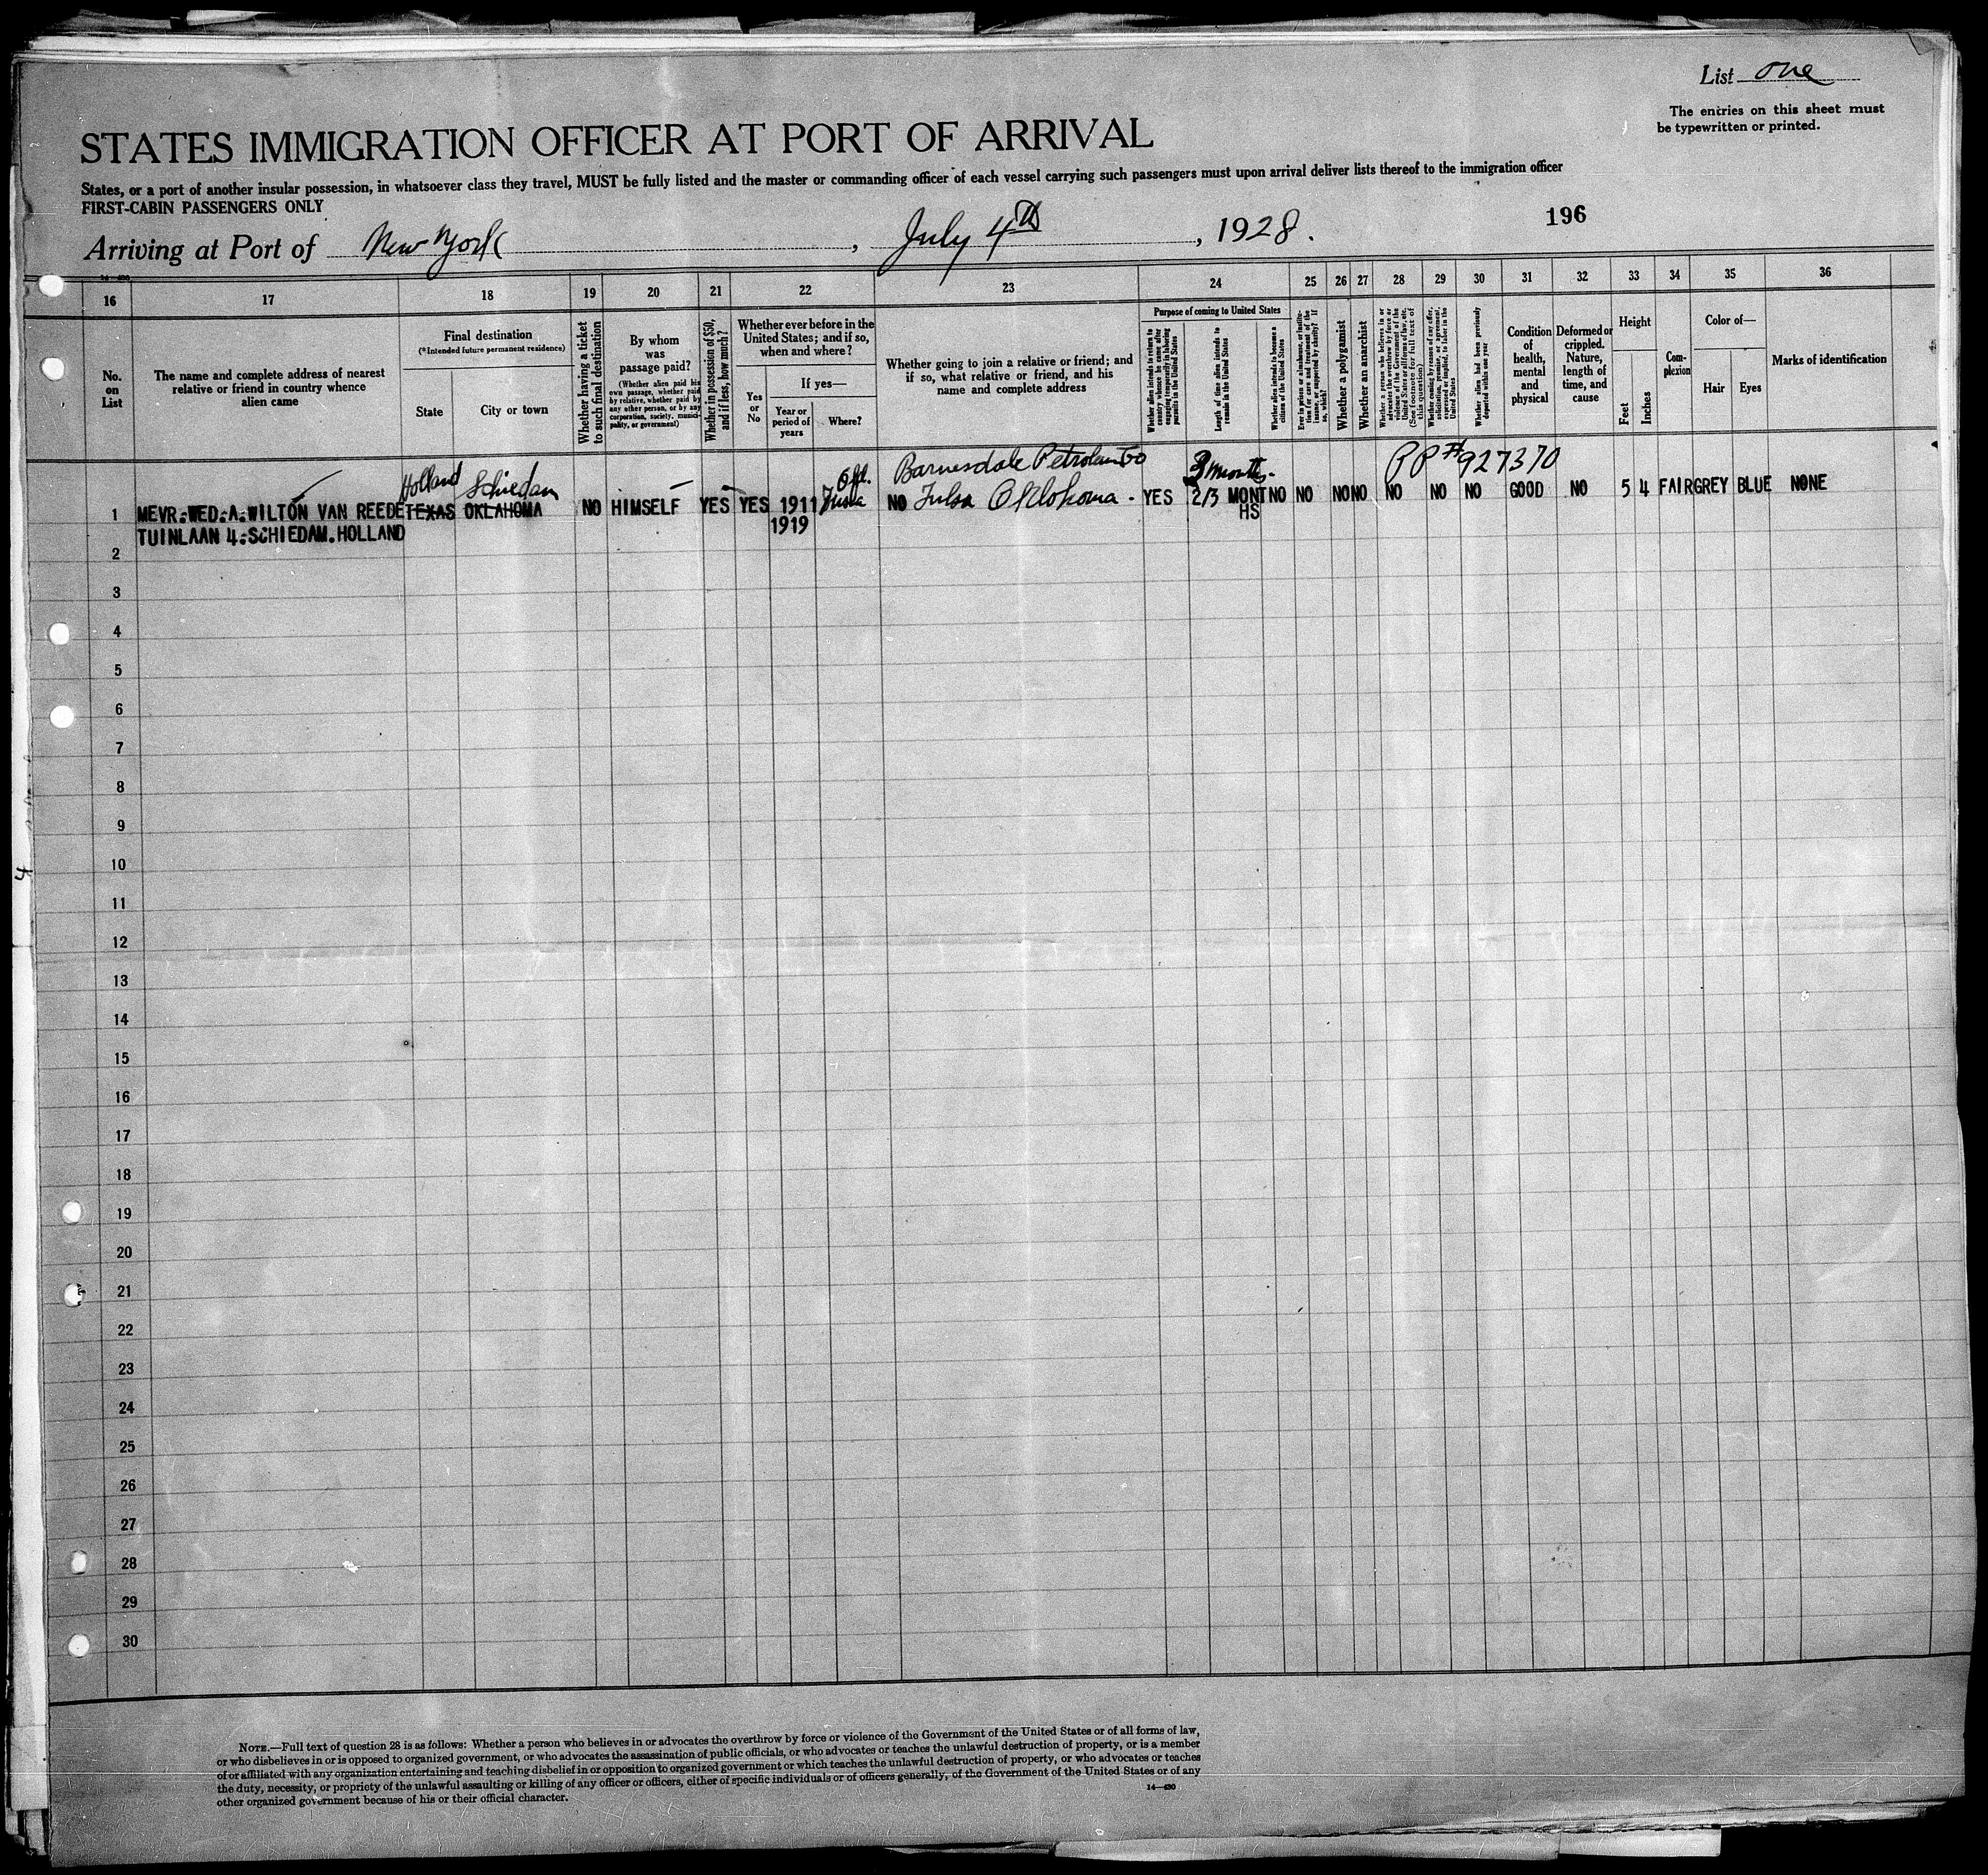 List one
The entries on this sheet must
be typewritten or printed.
STATES IMMIGRATION OFFICER AT PORT OF ARRIVAL
States, or a port of another insular possession, in whatsoever class they travel, MUST be fully listed and the master or commanding officer of each vessel carrying such passengers must upon arrival deliver lists thereof to the immigration officer
FIRST-CABIN PASSENGERS ONLY
196
Arriving at Port of New York, July 4th, 1928.
16 17 18 19 20 21 22 23 24 25 26 27 28 29 30 31 32 33 34 35 36
No.
on
List
The name and complete address of nearest
relative or friend in country whence
alien came
Final destination
(*Intended future permanent residence)
State
City or town
Whether having a ticket
to such final destination
By whom
was
passage paid?
(Whether alien paid his
own passage, whether paid
by relative, whether paid by
any other person, or by any
corporation, society, munici-
pality, or government)
Whether in possession of $50,
and if less, how much?
Whether ever before in the
United States; and if so,
when and where?
Yes
or
No
If yes—
Year or
period of
years
Where?
Whether going to join a relative or friend; and
if so, what relative or friend, and his
name and complete address
Purpose of coming to United States
Whether alien intends to return to
country whence he came after
engaging temporarily in laboring
pursuits in the United States
Length of time alien intends to
remain in the United States
Whether alien intends to become a
citizen of the United States
Ever in prison or almshouse, or institu-
tion for care and treatment of the
insane, or supported by charity? If
so, which?
Whether a polygamist
Whether an anarchist
Whether a person who believes in or
advocates the overthrow by force or
violence of the Government of the
United States or all forms of law, etc.
(See footnote for full text of
this question)
Whether coming by reason of any offer,
solicitation, promise, or agreement,
expressed or implied, to labor in the
United States
Whether alien had been previously
deported within one year
Condition
of
health,
mental
and
physical
Deformed or
crippled.
Nature,
length of
time, and
cause
Height
Feet
Inches
Com-
plexion
Color of—
Hair
Eyes
Marks of identification
Holland Schiedam
Okl.
Barnesdale Petroleum Co
3 months-
PP #927370
1 MEVR:WED:A:WILTON VAN REEDE TEXAS OKLAHOMA NO HIMSELF YES YES 1911 Tulsa NO Tulsa Oklohoma - YES 2/3 MONT NO NO NO NO NO NO NO GOOD NO 5 4 FAIR GREY BLUE NONE
TUINLAAN 4:SCHIEDAM.HOLLAND 1919 HS
2
3
4
5
6
7
8
9
10
11
12
13
14
15
16
17
18
19
20
21
22
23
24
25
26
27
28
29
30
4
NOTE.—Full text of question 28 is as follows: Whether a person who believes in or advocates the overthrow by force or violence of the Government of the United States or of all forms of law,
or who disbelieves in or is opposed to organized government, or who advocates the assassination of public officials, or who advocates or teaches the unlawful destruction of property, or is a member
of or affiliated with any organization entertaining and teaching disbelief in or opposition to organized government or which teaches the unlawful destruction of property, or who advocates or teaches
the duty, necessity, or propriety of the unlawful assaulting or killing of any officer or officers, either of specific individuals or of officers generally, of the Government of the United States or of any
other organized government because of his or their official character.
14—430